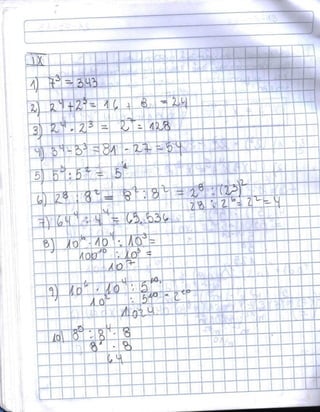 IX
1) 7³ = 343
2) 2⁴ + 2³ = 16 + 8 = 24
3) 2⁴ · 2³ = 2⁷ = 128
4) 3⁴ - 3³ = 81 - 27 = 54
5) 5³ : 5² = 5¹
6) 2⁸ : 8² = 8² : 8² = 2⁸ : (2³)²
2⁸ : 2⁶ = 2² = 4
7) 64⁴ : 4⁴ = 65.536
8) 10⁶ · 10⁴ : 10³ =
100¹⁰ : 10³ =
10⁷
9) 10⁶ · 10⁴ : 5¹⁰
: 5¹⁰ = 2¹⁰
1.024
: 8⁴ · 8
· 8
64